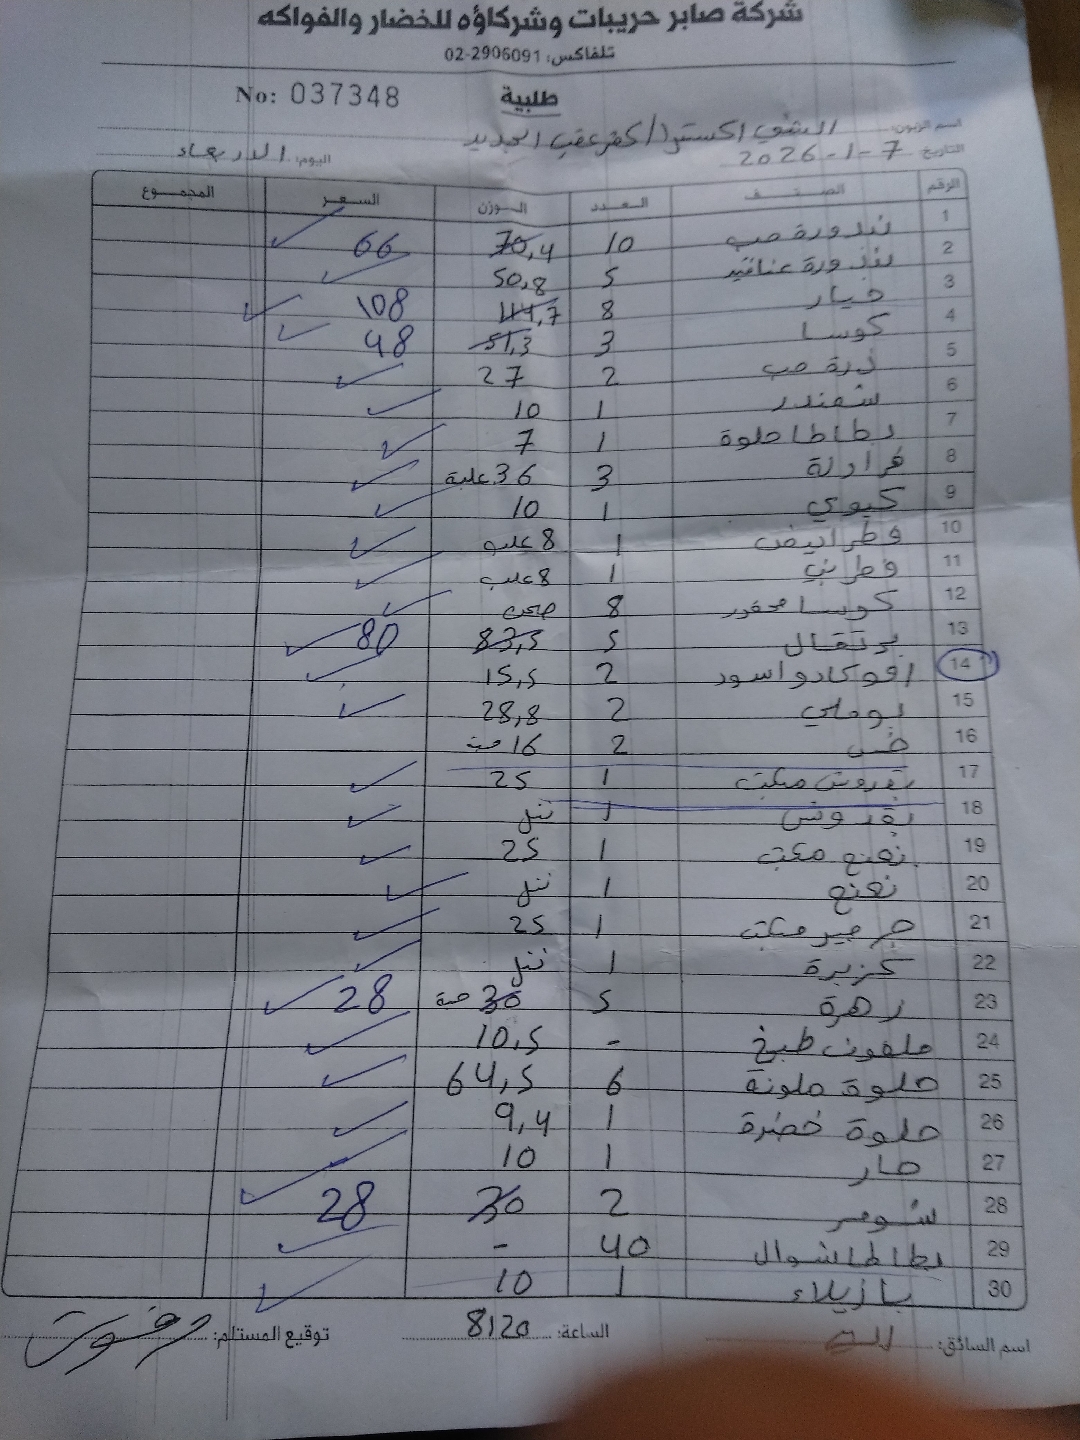 شركة صابر حريبات وشركاؤه للخضار والفواكه
تلفاكس: 02-2906091
طلبية
No: 037348
اسم الزبون: الشني اكسترا/كفر عقب الجديد
التاريخ 7-1-2026 اليوم: الاربعاء
الرقم الصنف العدد الوزن السعر المجموع
1 بندورة حب 10 70,4 66
2 بندورة عناقيد 5 50,8
3 خيار 8 111,7 108
4 كوسا 3 51,3 48
5 ذرة حب 2 27
6 شمندر 1 10
7 بطاطا حلوة 1 7
8 فراولة 3 36 علبة
9 كيوي 1 10
10 فطر ابيض 1 8 علب
11 فطر بني 1 8 علب
12 كوسا محفور 8 صحن
13 برتقال 5 83,5 80
14 افوكادو اسود 2 15,5
15 بوملي 2 28,8
16 خس 2 16 حبة
17 بقدونس مكتب 1 25
18 بقدونس 1
19 نعنع مكتب 1 25
20 نعنع 1
21 جرجير مكتب 1 25
22 كزبرة 1
23 زهرة 5 30 حبة 28
24 ملفوف طبخ - 10,5
25 حلوة ملونة 6 64,5
26 حلوة خضرة 1 9,4
27 حار 1 10
28 شومر 2 30 28
29 بطاطا شوال 40 -
30 بازيلاء 1 10
اسم السائق: الساعة: 8:20 توقيع المستلم: